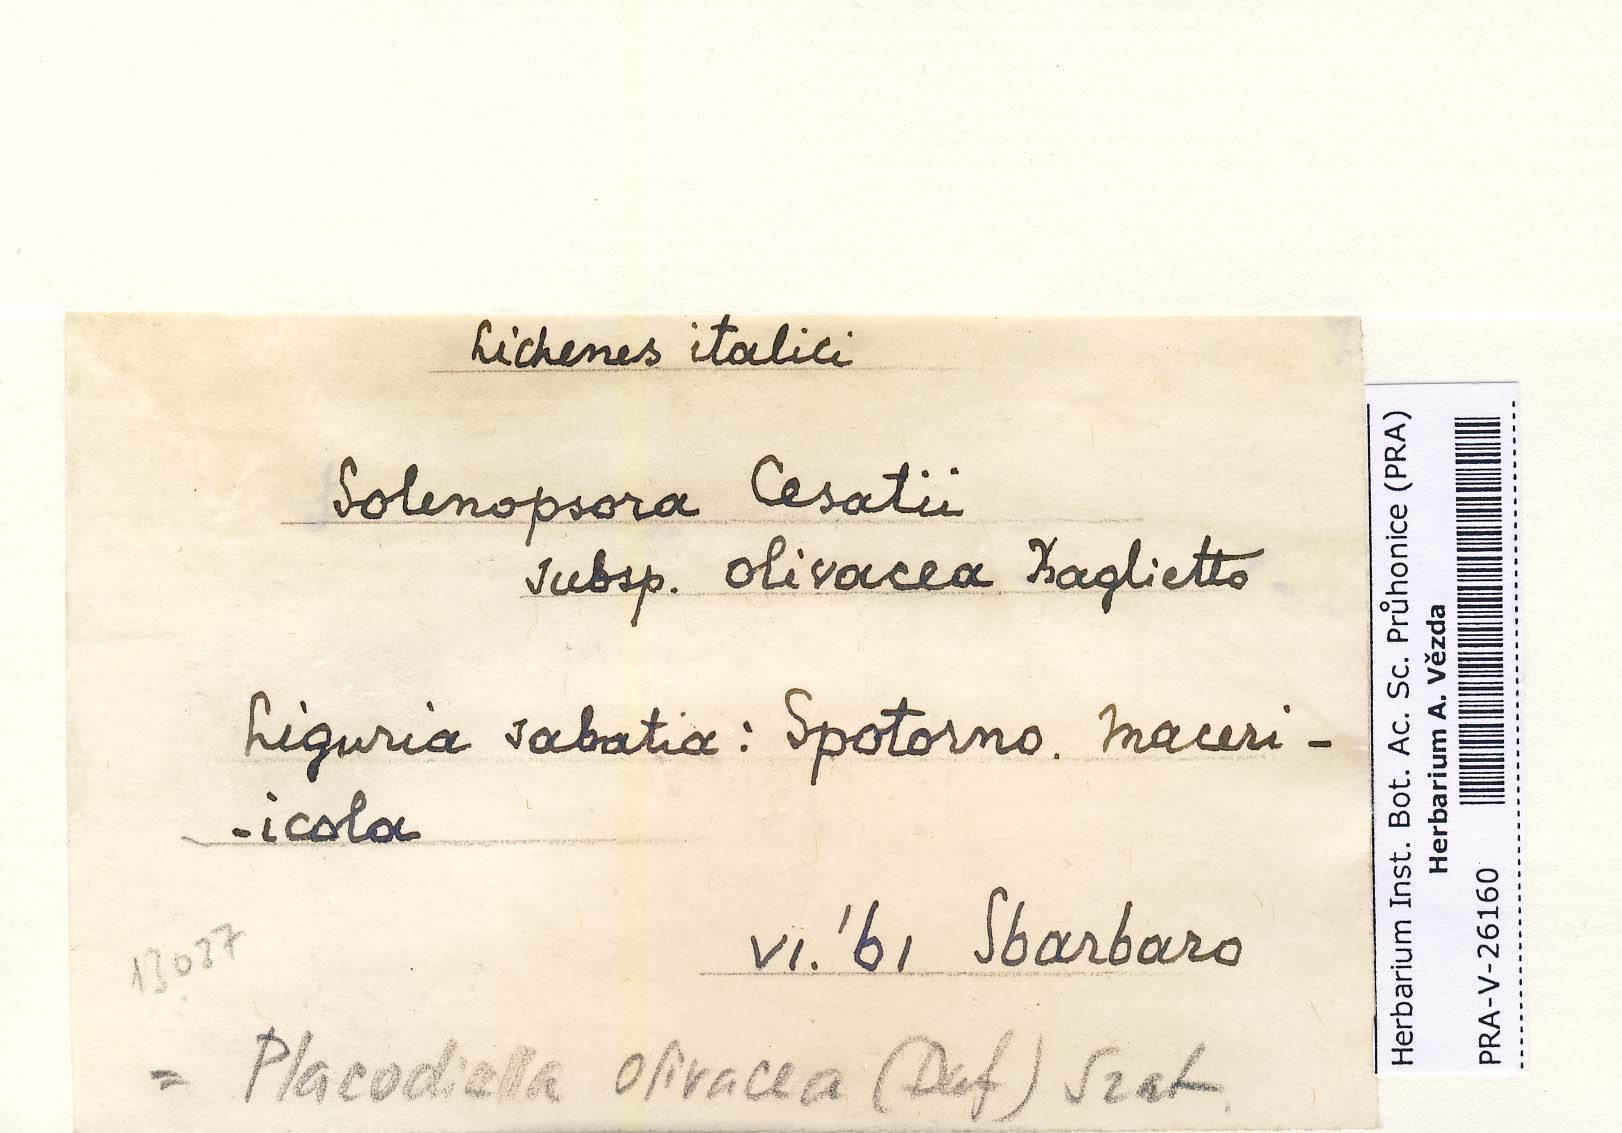 Lichenes italici
Solenopsora Cesatii
subsp. olivacea Baglietto
Liguria sabatia: Spotorno. Maceri-
-icola
VI. '61 Sbarbaro
13037
= Placodiella olivacea (Duf) Szat.
Herbarium Inst. Bot. Ac. Sc. Průhonice (PRA)
Herbarium A. Vězda
PRA-V-26160